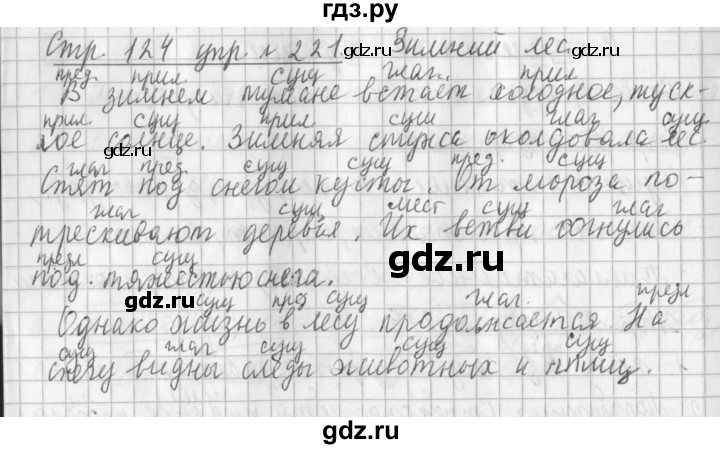 гдз.ру
Стр. 124 упр. № 221. Зимний лес.
пред. прил. сущ глаг. прил.
В зимнем тумане встаёт холодное, туск-
прил. сущ прил сущ глаг сущ
лое солнце. Зимняя стужа околдовала лес.
глаг пред. сущ сущ пред. сущ
Спят под снегом кусты. От мороза по-
глаг сущ мест сущ глаг
трескивают деревья. Их ветви согнулись
предл сущ
под тяжестью снега.
сущ пред сущ глаг. предл
Однако жизнь в лесу продолжается. На
сущ глаг сущ сущ сущ
снегу видны следы животных и птиц.
gdz.ru gdz.ru
gdz.ru
gdz.ru gdz.ru
gdz.ru
gdz.ru